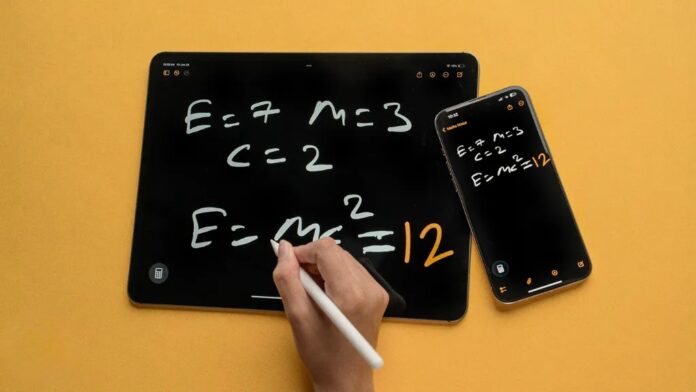 E=7 M=3
C=2
E=MC²=12
10:32
E=7 M=3
C=2
E=MC²=12